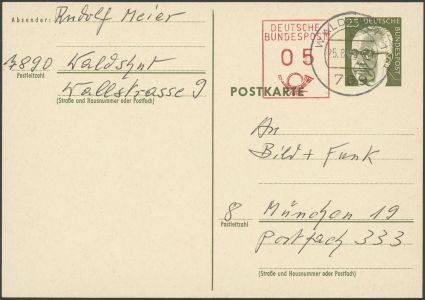 Absender: Rudolf Meier
7890 Waldshut
Postleitzahl
Wallstrasse 9
(Straße und Hausnummer oder Postfach)
DEUTSCHE
BUNDESPOST
05
25
DEUTSCHE
BUNDESPOST
POSTKARTE
An
Bild + Funk
8 München 19
Postleitzahl
Postfach 333
(Straße und Hausnummer oder Postfach)